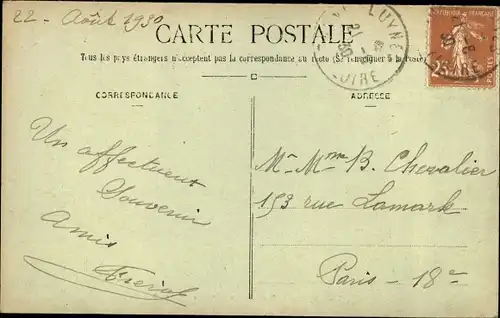 22 - Août 1930
CARTE POSTALE
Tous les pays étrangers n'acceptent pas la correspondance au recto (Se renseigner à la Poste)
CORRESPONDANCE
ADRESSE
LUYNES
LOIRE
25
Un affectueux
Souvenir
Amis
Mr Mme B. Chevalier
153 rue Lamark
Paris - 18e